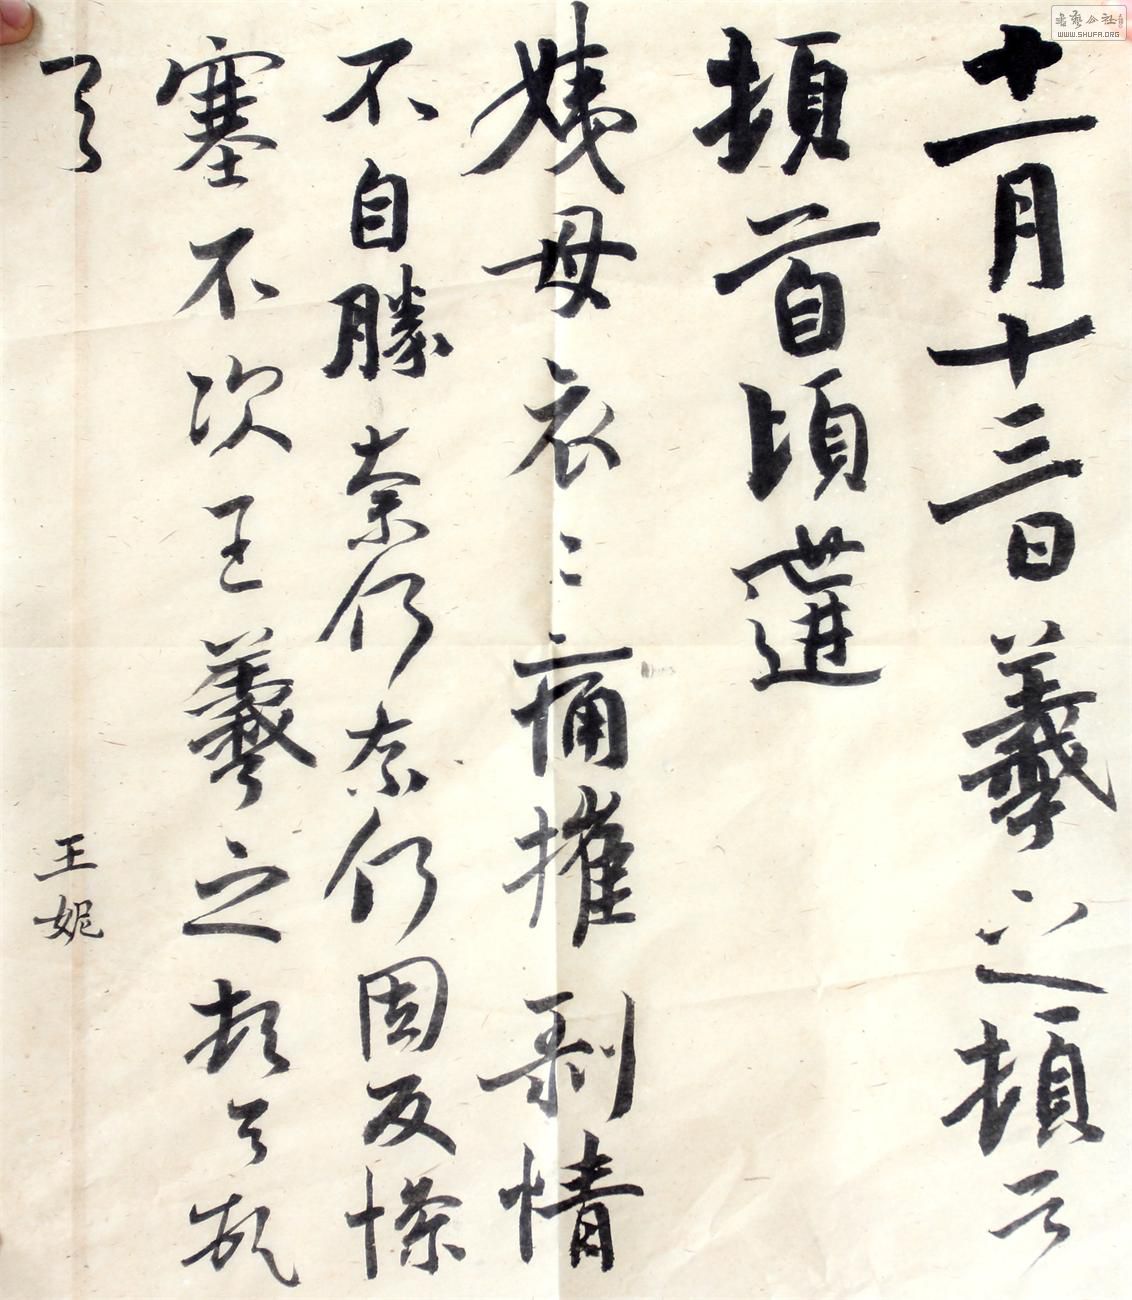 十一月十三日羲之頓首
頓首頃遘
姨母哀〻痛摧剥情
不自勝奈何奈何因反慘
塞不次王羲之頓首頓
首
王妮
書藝公社
WWW.SHUFA.ORG